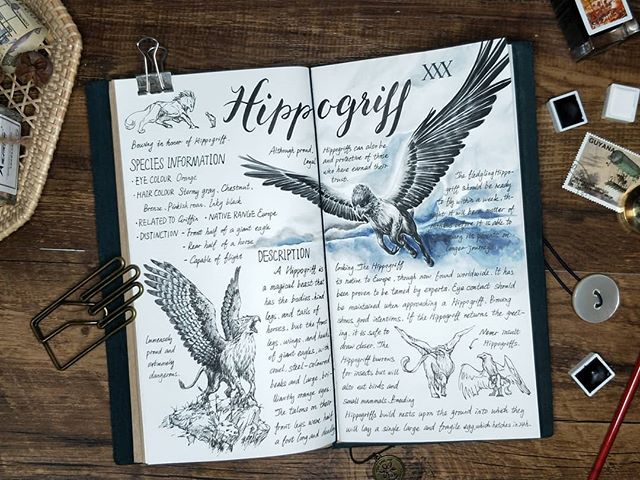 Hippogriff
XXX
Bowing in honor of Hippogriff.
SPECIES INFORMATION
• EYE COLOUR Orange
• HAIR COLOUR Stormy grey, Chestnut,
Bronze, Pinkish roan, Inky black
• RELATED TO Griffin • NATIVE RANGE Europe
• DISTINCTION - Front half of a giant eagle
- Rear half of a horse
- Capable of flight
Immensely
proud and
extremely
dangerous.
DESCRIPTION
A Hippogriff is
a magical beast that
has the bodies, hind
legs, and tails of
horses, but the front
legs, wings, and heads
of giant eagles, with
cruel, steel-coloured
beaks and large, bri-
lliantly orange eyes.
The talons on their
front legs were half
a foot long and deadly
Although proud, Hippogriffs can also be
loyal and protective of those
who have earned their
trust.
The fledgling Hippo-
griff should be ready
to fly within a week, th-
it will be a matter of
before it is able to
longer journeys.
looking. The Hippogriff
is native to Europe, though now found worldwide. It has
been proven to be tamed by experts. Eye contact should
be maintained when approaching a Hippogriff. Bowing
shows good intentions. If the Hippogriff returns the greet-
ing, it is safe to
draw closer. The
Hippogriff burrows
for insects but will
also eat birds and
small mammals. Breeding
Hippogriffs build nests upon the ground into which they
will lay a single large and fragile egg, which hatches in 24h.
Never insult
Hippogriffs.
GUYANA